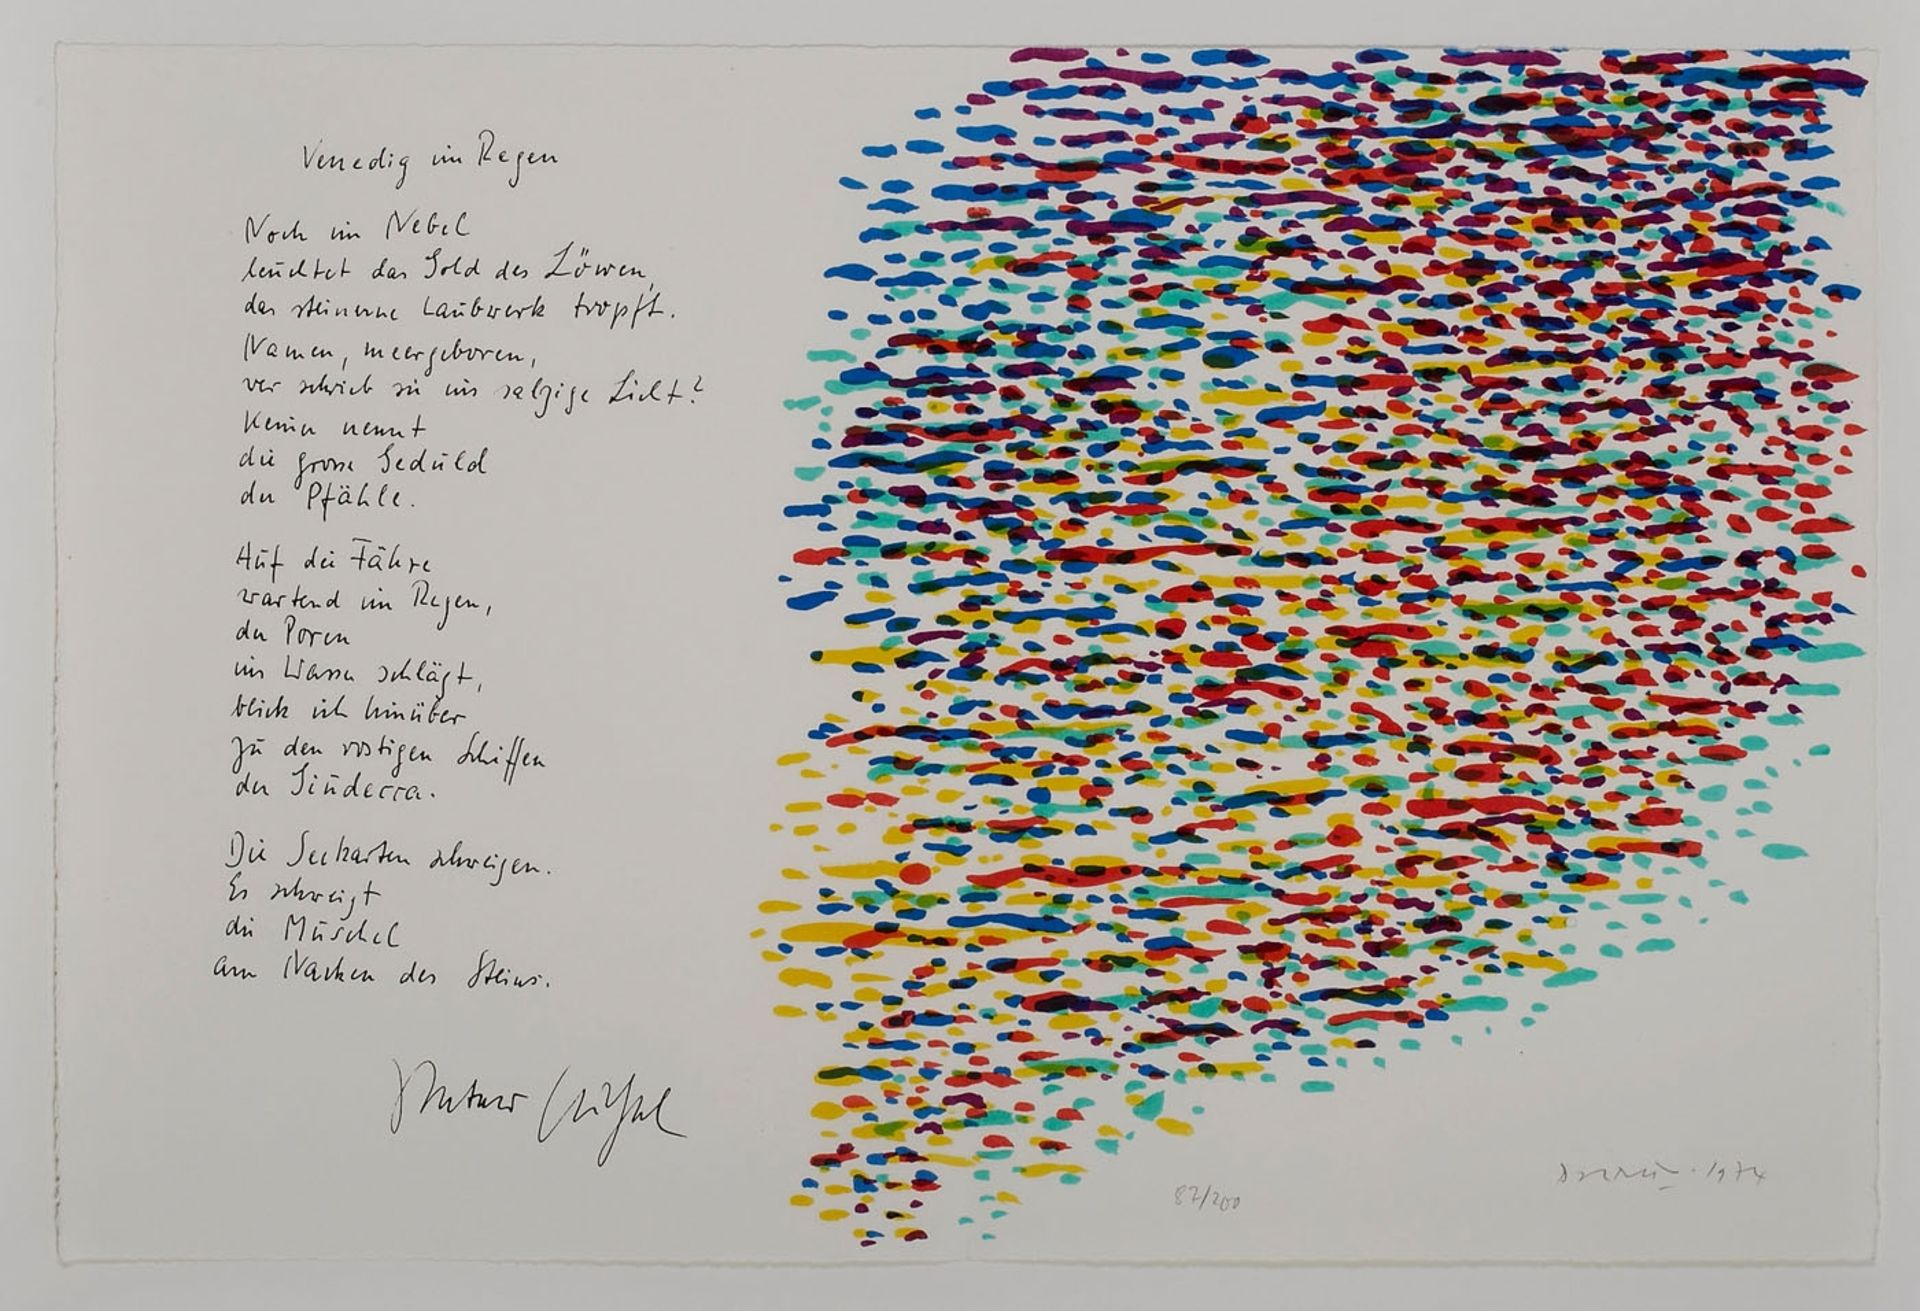 Venedig im Regen
Noch im Nebel
leuchtet das Gold des Löwen,
das steinerne Laubwerk tropft.
Namen, meergeboren,
wer schrieb sie ins salzige Licht?
Keiner nennt
die grosse Geduld
der Pfähle.
Auf die Fähre
wartend im Regen,
der Poren
ins Wasser schlägt,
blick ich hinüber
zu den rostigen Schiffen
der Giudecca.
Die Seekarten schweigen.
Es schweigt
die Muschel
am Nacken des Steins.
Piero Dorazio 1974
87/200